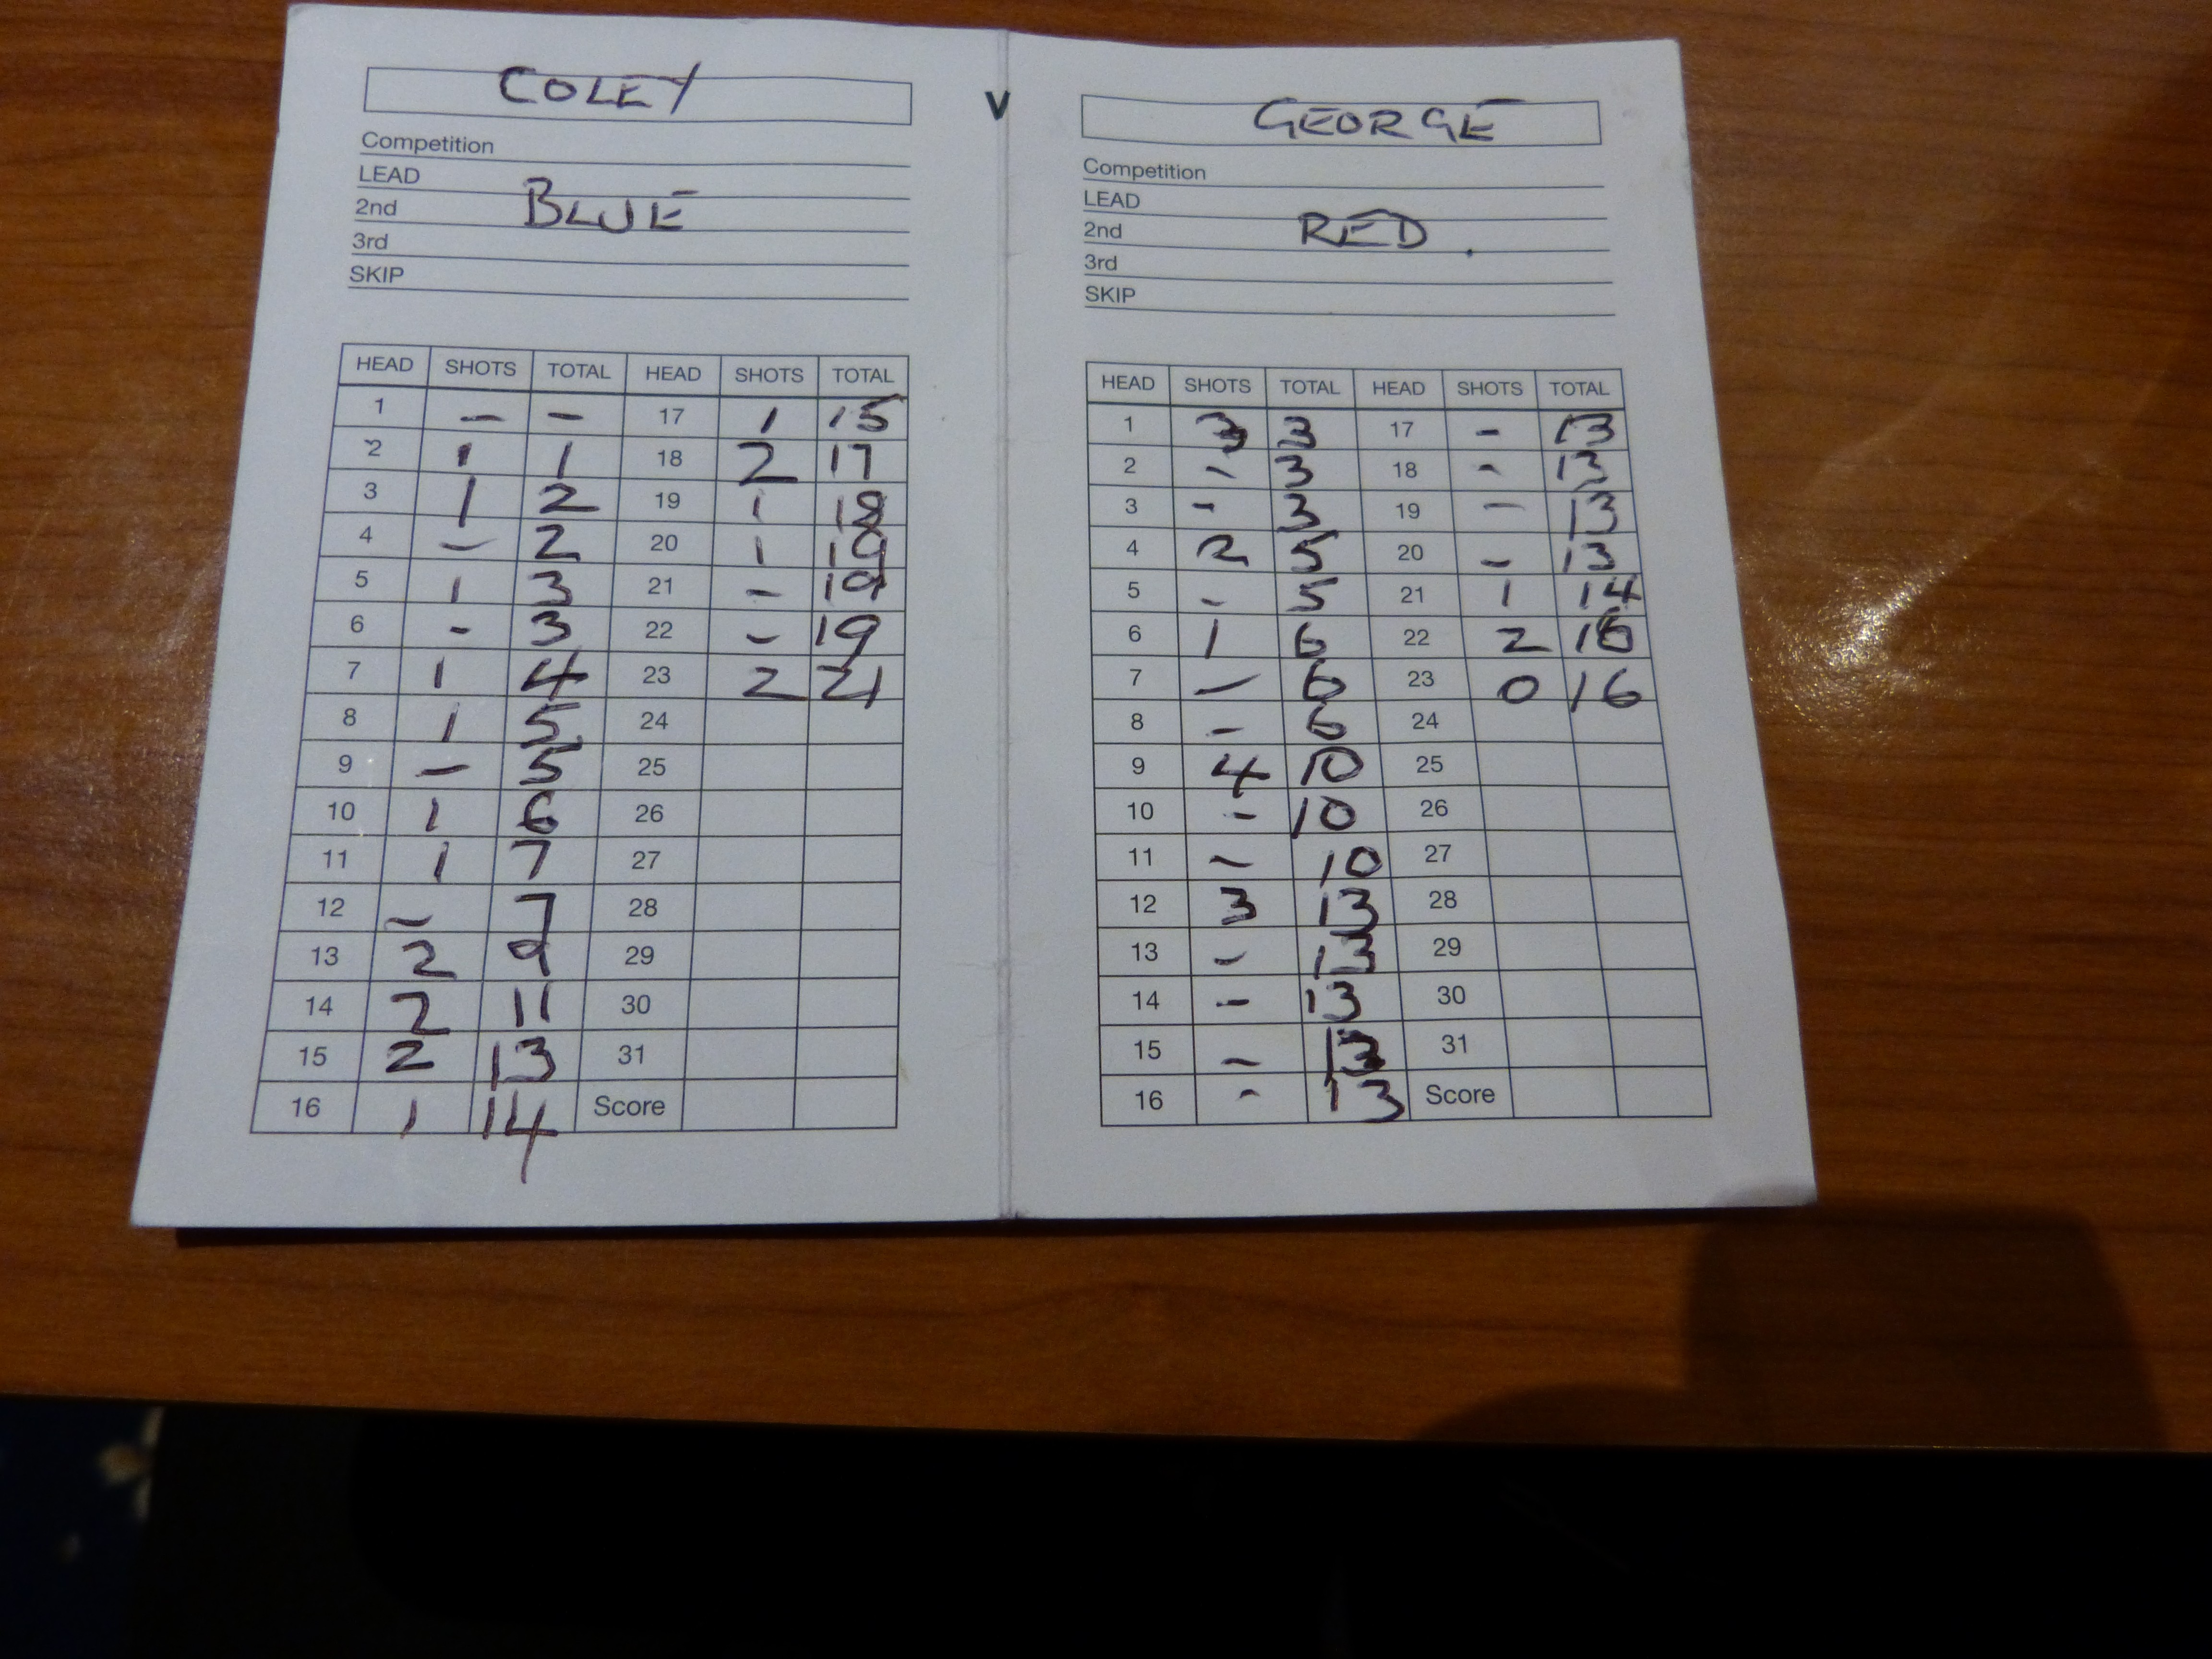 COLEY
Competition
LEAD
2nd BLUE
3rd
SKIP
HEAD SHOTS TOTAL HEAD SHOTS TOTAL
1 - - 17 1 15
2 1 1 18 2 17
3 1 2 19 1 18
4 - 2 20 1 19
5 1 3 21 - 19
6 - 3 22 - 19
7 1 4 23 2 21
8 1 5 24
9 - 5 25
10 1 6 26
11 1 7 27
12 - 7 28
13 2 9 29
14 2 11 30
15 2 13 31
16 1 14 Score
V
GEORGE
Competition
LEAD
2nd RED.
3rd
SKIP
HEAD SHOTS TOTAL HEAD SHOTS TOTAL
1 3 3 17 - 13
2 - 3 18 - 13
3 - 3 19 - 13
4 2 5 20 - 13
5 - 5 21 1 14
6 1 6 22 2 16
7 - 6 23 0 16
8 - 6 24
9 4 10 25
10 - 10 26
11 - 10 27
12 3 13 28
13 - 13 29
14 - 13 30
15 - 13 31
16 - 13 Score